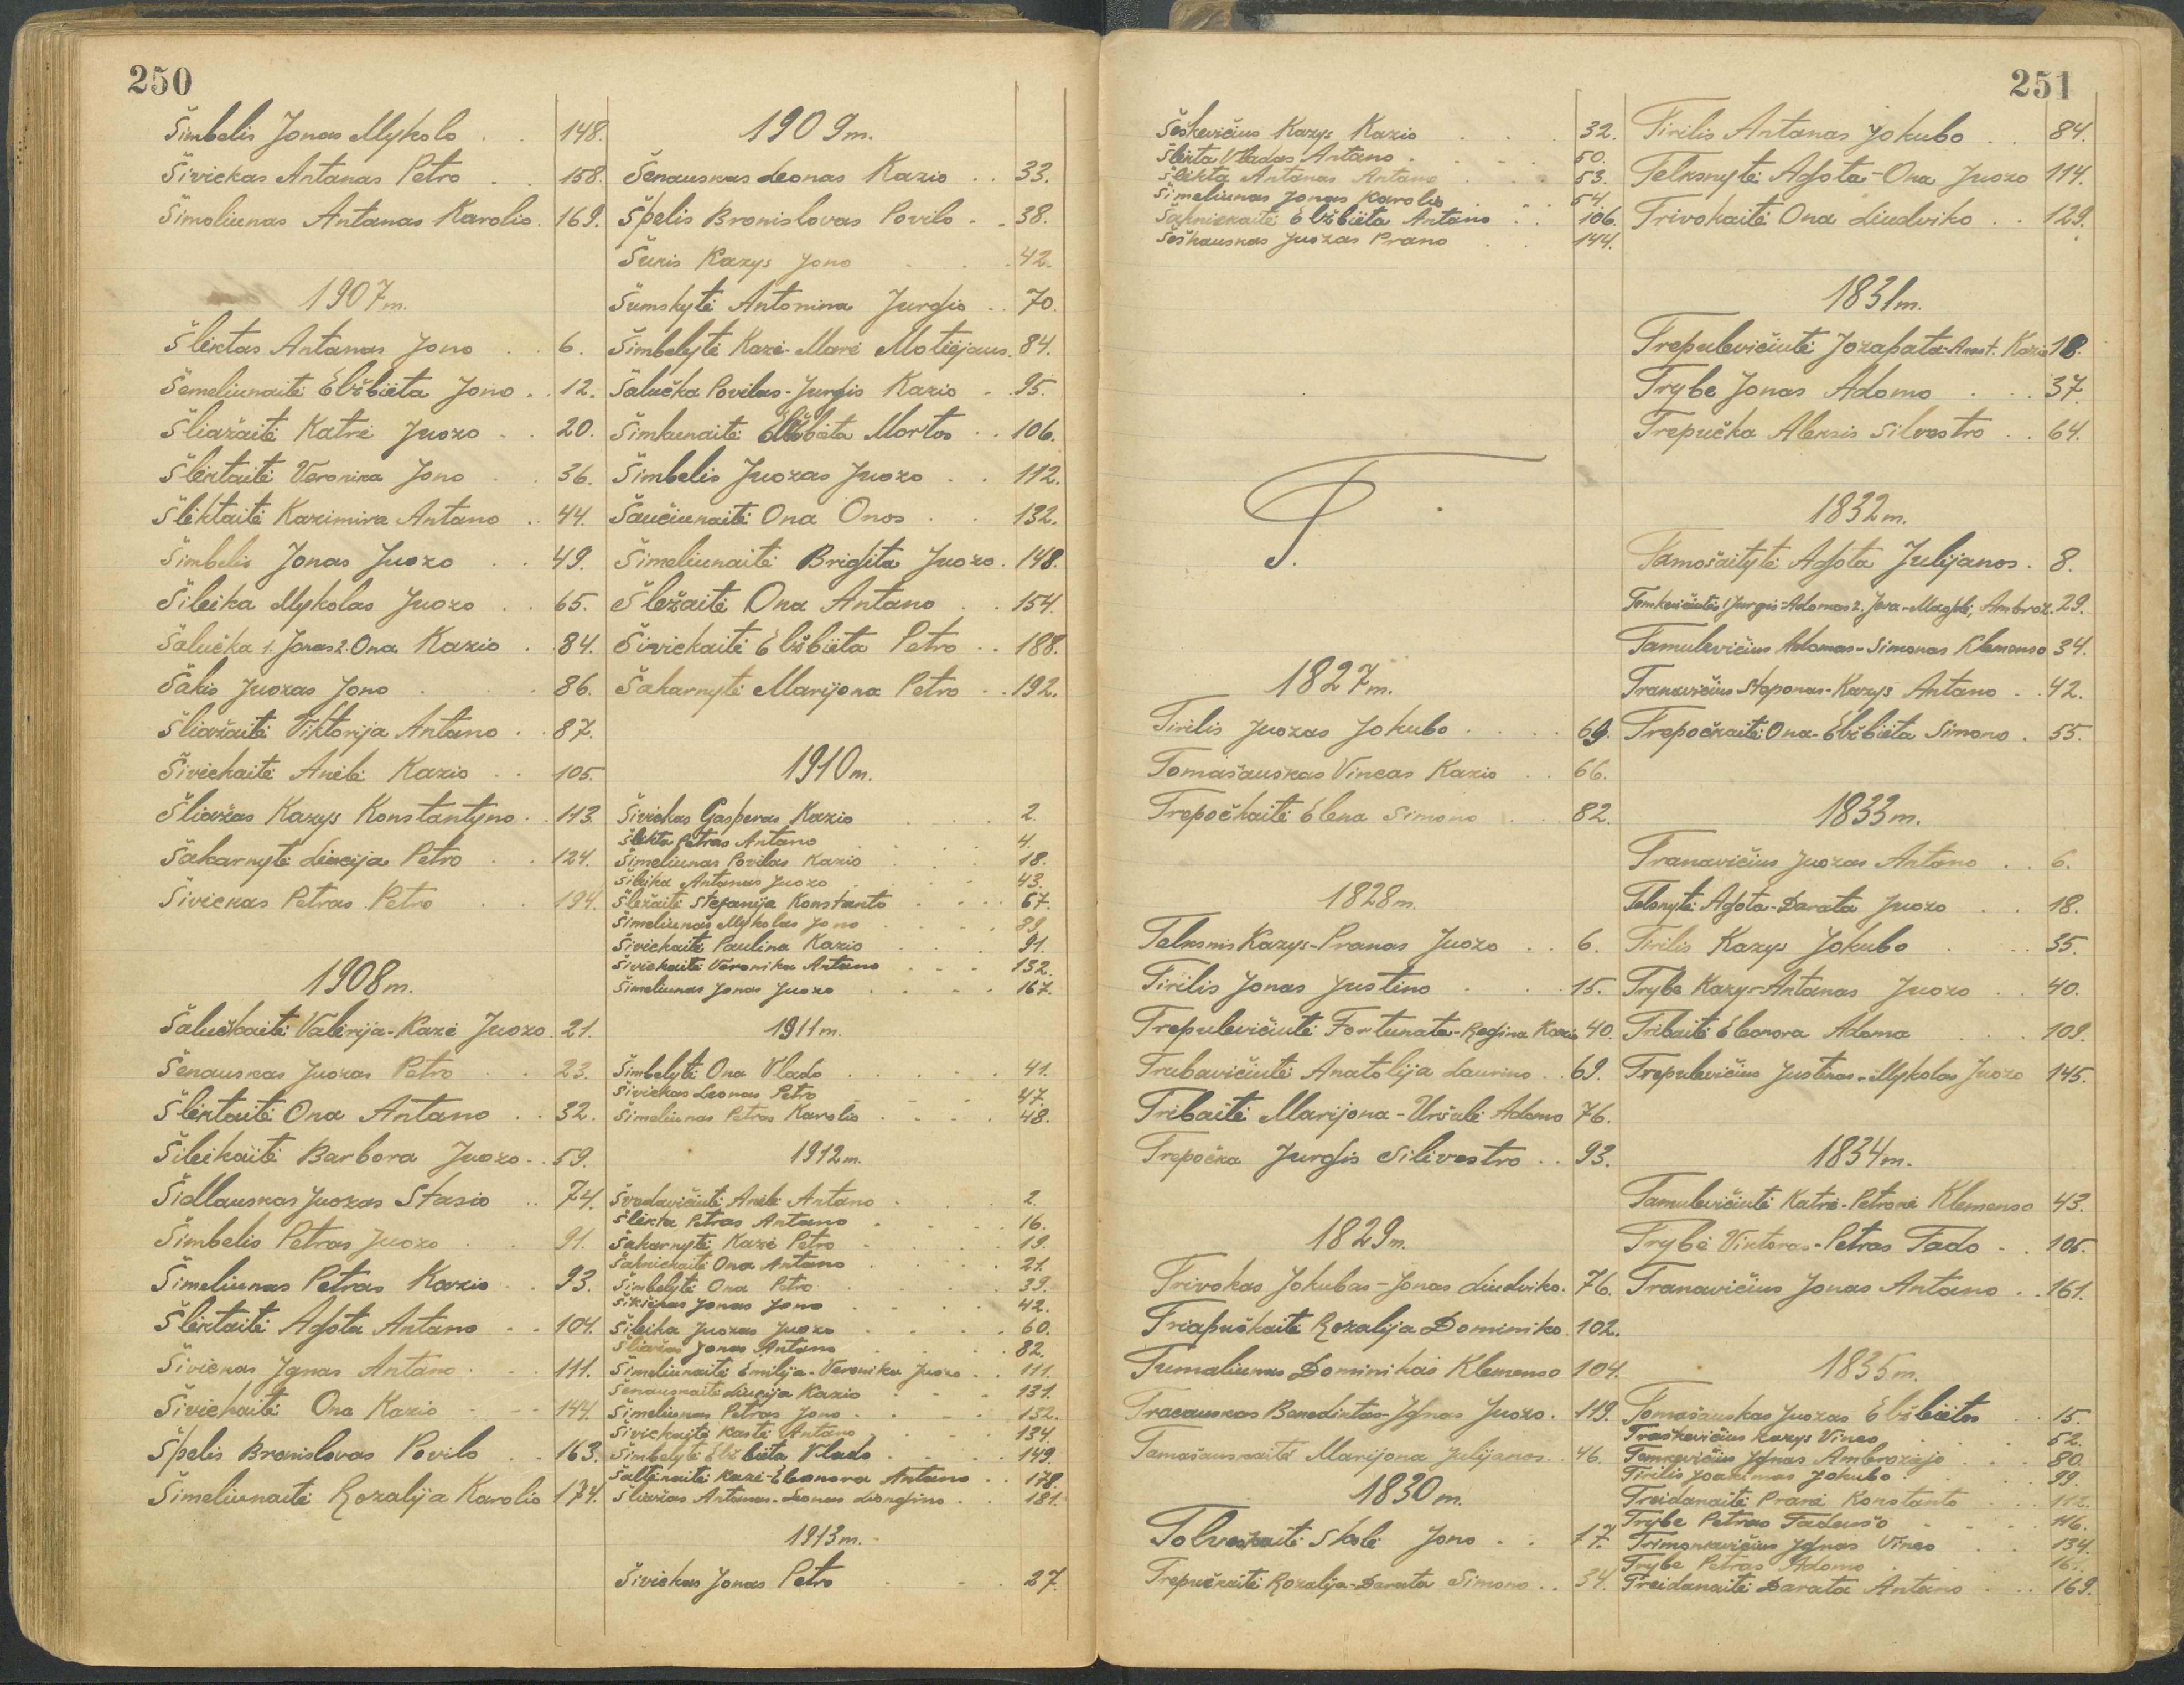 250
Šimbelis Jonas Mykolo . . 148.
Šivickas Antanas Petro . . 158.
Šimoliunas Antanas Karolio. 169.
1907m.
Šlektas Antanas Jono . . 6.
Šemeliunaitė Elžbieta Jono . . 12.
Šliažaitė Katrė Juozo . . 20.
Šlektaitė Veronika Jono . . 36.
Šliktaitė Kazimira Antano . . 44.
Šimbelis Jonas Juozo . . 49.
Šileika Mykolas Juozo . . 65.
Šalučka 1. Jonas 2. Ona Kazio . . 84.
Šakis Juozas Jono . . . 86.
Šliažaitė Viktorija Antano . . 87.
Šivickaitė Anėlė Kazio . . 105.
Šliažas Kazys Konstantyno . . 113.
Šakarnytė Liucija Petro . . 124.
Šivickas Petras Petro . . 194.
1908m.
Šalučkaitė Valerija-Kazė Juozo. 21.
Šenauskas Juozas Petro . . 23.
Šlektaitė Ona Antano . . 32.
Šileikaitė Barbora Juozo . . 59.
Šidlauskas Juozas Stasio . . 74.
Šimbelis Petras Juozo . . 91.
Šimeliunas Petras Kazio . . 93.
Šlektaitė Agota Antano . . 104.
Šivickas Ignas Antano . . 111.
Šivickaitė Ona Kazio . . 144.
Špelis Bronislovas Povilo . . 163.
Šimeliunaitė Rozalija Karolio 174.
1909m.
Šenauskas Leonas Kazio . . 33.
Špelis Bronislovas Povilo . . 38.
Šukis Kazys Jono . . . 42.
Šumskytė Antonina Jurgio . . 70.
Šimbelytė Kazė-Marė Motiejaus. 84.
Šalučka Povilas-Jurgis Kazio . 95.
Šimkunaitė Elžbieta Mortos . . 106.
Šimbelis Juozas Juozo . . 112.
Šaučiunaitė Ona Onos . . 132.
Šimeliunaitė Brigita Juozo. 148.
Šležaitė Ona Antano . . 154.
Šivickaitė Elžbieta Petro . . 188.
Šakarnytė Marijona Petro . . 192.
1910m.
Šivickas Gasparas Kazio . . . 2.
Šlikta Petras Antano . . . 4.
Šimeliunas Povilas Kazio . . . 18.
Šileika Antanas Juozo . . . 43.
Šležaitė Stefanija Konstanto . . . 67.
Šimeliunas Mykolas Jono . . . 89.
Šivickaitė Paulina Kazio . . . 91.
Šivickaitė Veronika Antano . . . 132.
Šimeliunas Jonas Juozo . . . 167.
1911m.
Šimbelytė Ona Vlado . . . 41.
Šivickas Leonas Petro . . . 47.
Šimeliunas Petras Karolio . . . 48.
1912m.
Švedavičiutė Anėlė Antano . . . 2.
Šlekta Petras Antano . . . 16.
Šakarnytė Kazė Petro . . . 19.
Šaknickaitė Ona Antano . . . 21.
Šimbelytė Ona Petro . . . 39.
Šikšnas Jonas Jono . . . 42.
Šileika Juozas Juozo . . . 60.
Šliažas Jonas Antano . . . 82.
Šimeliunaitė Emilija-Veronika Juozo . . 111.
Šenauskaitė Liucija Kazio . . . 131.
Šimeliunas Petras Jono . . . 132.
Šivickaitė Kastė Antano . . . 134.
Šimbelytė Elžbieta Vlado . . . 149.
Šaltenaitė Kazė-Eleonora Antano . . 178.
Šliažas Antanas-Leonas Liongino . . 181.
1913m.
Šivickas Jonas Petro . . . 27.
251
Šeškevičius Kazys Kazio . . . 32.
Šlekta Vladas Antano . . . 50.
Šlikta Antanas Antano . . . 53.
Šimeliunas Jonas Karolio . . . 54.
Šaknickaitė Elžbieta Antano . . 106.
Šeškauskas Juozas Prano . . 144.
T.
1827m.
Tirilis Juozas Jokubo . . . 69.
Tomašauskas Vincas Kazio . . 66.
Trepočkaitė Elena Simono . . 82.
1828m.
Telksnis Kazys-Pranas Juozo . . 6.
Tirilis Jonas Justino . . . 15.
Trepulevičiutė Fortunata-Regina Kazio 40.
Trubavičiutė Anatolija Laurino . . 69.
Tribaitė Marijona-Uršulė Adomo 76.
Trepočka Jurgis Silivestro . . 93.
1829m.
Trivokas Jokubas-Jonas Liudviko. 76.
Triapuškaitė Rozalija Dominiko. 102.
Tumaliunas Dominikas Klemenso 104.
Tracauskas Benediktas-Ignas Juozo. 119.
Tamašauskaitė Marijona Julijonos. . 46.
1830m.
Tolveišaitė Skolė Jono . . 17.
Trepučkaitė Rozalija-Darata Simono . . 34.
Tirilis Antanas Jokubo . . 84.
Telksnytė Agota-Ona Juozo 114.
Trivokaitė Ona Liudviko . . 129.
1831m.
Trepulevičiutė Jozapata-Anast. Kazio 18.
Trybe Jonas Adomo . . . 37.
Trepučka Aleksis Silvestro . . 64.
1832m.
Tamošaitytė Agota Julijanos. 8.
Tomkevičiutės 1 Jurgis-Adomas 2. Jeva-Magdė, Ambroz. 29.
Tamulevičius Adomas-Simonas Klemenso 34.
Tranavičius Steponas-Kazys Antano . . 42.
Trepočkaitė Ona-Elžbieta Simono . 55.
1833m.
Tranavičius Juozas Antano . . 6.
Telksnytė Agota-Darata Juozo . . 18.
Tirilis Kazys Jokubo . . . 35.
Trybe Kazys-Antanas Juozo . . 40.
Tribaitė Eleonora Adoma . . . 109.
Trepulevičius Justinas-Mykolas Juozo 145.
1834m.
Tamulevičiutė Katrė-Petronė Klemenso 43.
Trybė Viktoras-Petras Tado . . 105.
Tranavičius Jonas Antano . . 161.
1835m.
Tomašauskas Juozas Elžbietos . . 15.
Traskevičius Kazys Vinco . . . 52.
Tomkevičius Ignas Ambroziejo . . . 80.
Tirilis Joakimas Jokubo . . . 99.
Treidanaitė Pranė Konstanto . . . 112.
Trybe Petras Tadeušo . . . 116.
Trimonkavičius Ignas Vinco . . 134.
Trybe Petras Adomo . . .
Treidanaitė Darata Antano . . . 169.